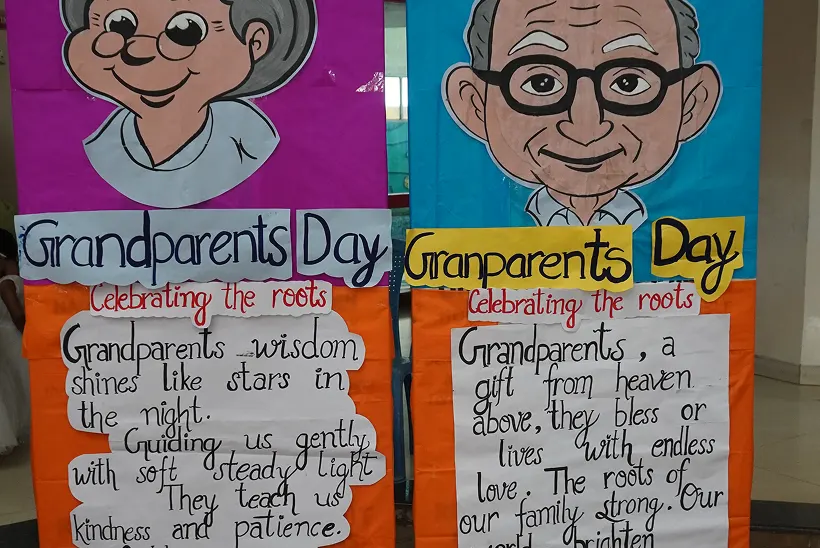 Grandparents Day
Celebrating the roots
Grandparents wisdom
shines like stars in
the night.
Guiding us gently
with soft steady light
They teach us
kindness and patience.
Granparents Day
Celebrating the roots
Grandparents, a
gift from heaven
above, they bless or
lives with endless
love. The roots of
our family strong. Our
world brighten